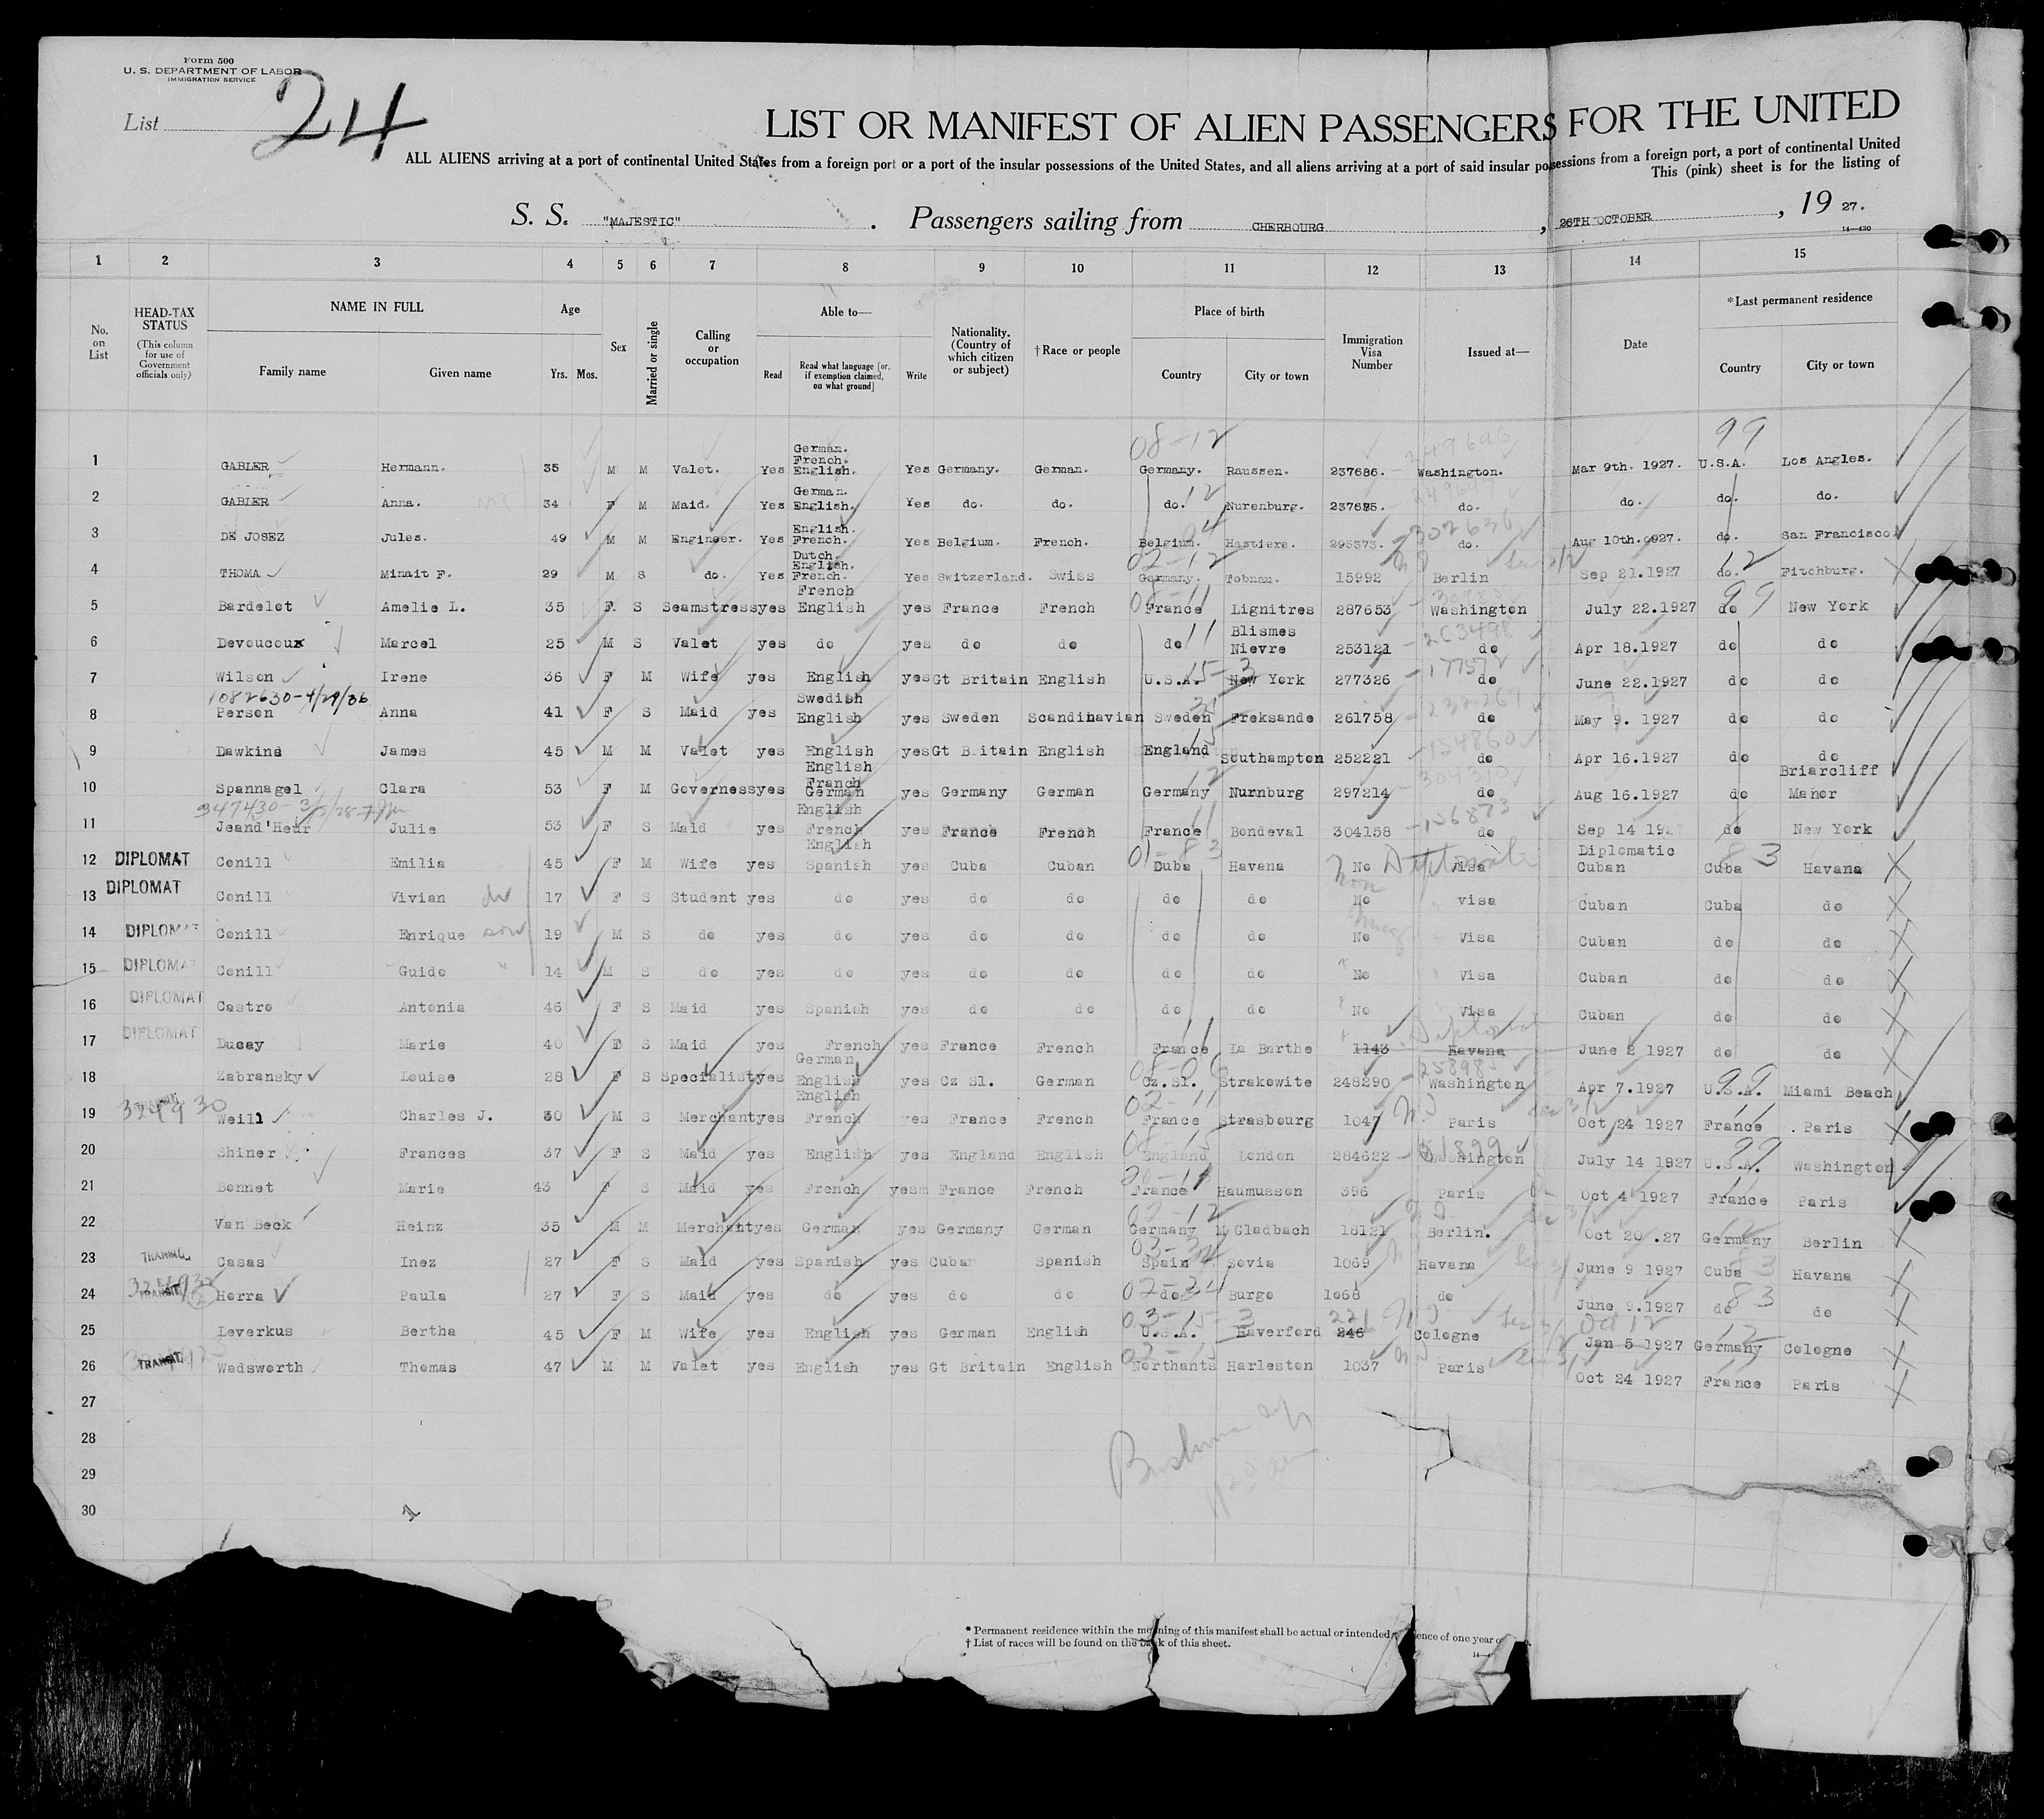 Form 500
U. S. DEPARTMENT OF LABOR
IMMIGRATION SERVICE
List 24
LIST OR MANIFEST OF ALIEN PASSENGERS FOR THE UNITED
ALL ALIENS arriving at a port of continental United States from a foreign port or a port of the insular possessions of the United States, and all aliens arriving at a port of said insular possessions from a foreign port, a port of continental United
This (pink) sheet is for the listing of
S. S. "MAJESTIC". Passengers sailing from CHERBOURG, 26TH OCTOBER, 19 27.
14—430
1 2 3 4 5 6 7 8 9 10 11 12 13 14 15
No. on List
HEAD-TAX STATUS (This column for use of Government officials only)
NAME IN FULL Family name Given name
Age Yrs. Mos.
Sex
Married or single
Calling or occupation
Able to— Read Read what language [or, if exemption claimed, on what ground] Write
Nationality. (Country of which citizen or subject)
†Race or people
Place of birth Country City or town
Immigration Visa Number
Issued at—
Date
*Last permanent residence Country City or town
1 GABLER Hermann. 35 M M Valet. Yes German. French. English. Yes Germany. German. 08-12 Germany. Raussen. 237686. - 249646 Washington. Mar 9th. 1927. 99 U.S.A. Los Angles.
2 GABLER Anna. 34 F M Maid. Yes German. English. Yes do. do. do. 12 Nurenburg. 237685. do. do. do. do.
3 DE JOSEZ Jules. 49 M M Engineer. Yes English. French. Yes Belgium. French. Belgium. 04 Hastiere. 295373. - 302636 do. Aug 10th. 1927. do. San Francisco
4 THOMA Minait F. 29 M S do. Yes Dutch. English. French. Yes Switzerland. Swiss 02-12 Germany. Tobnau. 15992 Berlin Sep 21.1927 do. 12 Fitchburg.
5 Bardelot Amelie L. 35 F. S Seamstress yes French English yes France French 08-11 France Lignitres 287653 Washington July 22.1927 do 99 New York
6 Devoucoux Marcel 25 M S Valet yes do yes do do do 11 Blismes Nievre 253121 - 263498 do Apr 18.1927 do do
7 Wilson Irene 36 F M Wife yes English yes Gt Britain English U.S.A. 15-3 New York 277326 - 177572 do June 22.1927 do do
1082630-4/29/36
8 Person Anna 41 F S Maid yes Swedish English yes Sweden Scandinavian Sweden Freksande 261758 - 232269 do May 9. 1927 do do
9 Dawkins James 45 M M Valet yes English yes Gt Britain English England 15 Southampton 252221 - 154860 do Apr 16.1927 do do
10 Spannagel Clara 53 F M Governess yes English French German yes Germany German Germany 12 Nurnburg 297214 - 304310 do Aug 16.1927 do Briarcliff Manor
347430-
11 Jeand'Heur Julie 53 F S Maid yes English French yes France French France 11 Bondeval 304158 - 156873 do Sep 14 1927 do New York
12 DIPLOMAT Conill Emilia 45 F M Wife yes English Spanish yes Cuba Cuban 01-83 Cuba Havana No Visa Diplomatic Cuban Cuba 83 Havana
13 DIPLOMAT Conill Vivian 17 F S Student yes do yes do do do do No visa Cuban Cuba do
14 DIPLOMAT Conill Enrique son 19 M S do yes do yes do do do do No Visa Cuban do do
15 DIPLOMAT Conill Guido " 14 M S do yes do yes do do do do No Visa Cuban do do
16 DIPLOMAT Castro Antonia 46 F S Maid yes Spanish yes do do do do No Visa Cuban do do
17 DIPLOMAT Ducay Marie 40 F S Maid yes French yes France French France 11 La Barthe 1143 Havana June 2 1927 do do
18 Zabransky Louise 28 F S Specialist yes German English yes Cz Sl. German 08-06 Cz.Sl. Strakowite 248290 - 258985 Washington Apr 7.1927 99 U.S.A. Miami Beach
19 324930 Weill Charles J. 30 M S Merchant yes English French yes France French 02-11 France Strasbourg 1047 Paris Oct 24 1927 11 France Paris
20 Shiner Frances 37 F S Maid yes English yes England English 08-15 England London 284622 Washington July 14 1927 99 U.S.A. Washington
21 Bonnet Marie 43 F S Maid yes French yes France French 20-11 France Haumusson 396 Paris Oct 4 1927 11 France Paris
22 Van Beck Heinz 35 M M Merchant yes German yes Germany German 02-12 Germany M Gladbach 18121 Berlin. Oct 20 .27 12 Germany Berlin
23 TRANSIT Casas Inez 27 F S Maid yes Spanish yes Cuban Spanish 03-34 Spain Sovia 1069 Havana June 9 1927 Cuba 83 Havana
24 TRANSIT Horra Paula 27 F S Maid yes do yes do do 02-34 do Burgo 1068 do June 9.1927 do 83 do
25 Leverkus Bertha 45 F M Wife yes English yes German English 03-15-3 U.S.A. Haverford 221 246 Cologne Oct 12 Jan 5 1927 12 Germany Cologne
26 TRANSIT Wadsworth Thomas 47 M M Valet yes English yes Gt Britain English 02-15 Northants Harleston 1037 Paris Oct 24 1927 11 France Paris
27
28
29
30
* Permanent residence within the meaning of this manifest shall be actual or intended
ence of one year o
† List of races will be found on the back of this sheet.
14—4